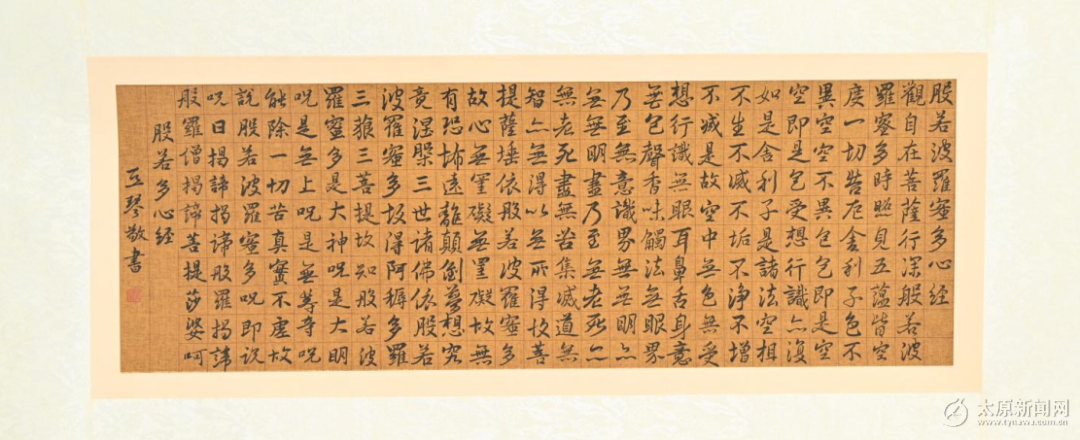 般若波羅蜜多心經
觀自在菩薩行深般若波
羅蜜多時照見五蘊皆空
度一切苦厄舍利子色不
異空空不異色色即是空
空即是色受想行識亦復
如是舍利子是諸法空相
不生不滅不垢不淨不增
不減是故空中無色無受
想行識無眼耳鼻舌身意
無色聲香味觸法無眼界
乃至無意識界無無明亦
無無明盡乃至無老死亦
無老死盡無苦集滅道無
智亦無得以無所得故菩
提薩埵依般若波羅蜜多
故心無罣礙無罣礙故無
有恐怖遠離顛倒夢想究
竟涅槃三世諸佛依般若
波羅蜜多故得阿耨多羅
三藐三菩提故知般若波
羅蜜多是大神呪是大明
呪是無上呪是無等等呪
能除一切苦真實不虛故
說般若波羅蜜多呪即說
呪曰揭諦揭諦般羅揭諦
般羅僧揭諦菩提莎婆呵
般若多心經
亞琴敬書
太原新闻网
www.tynews.com.cn